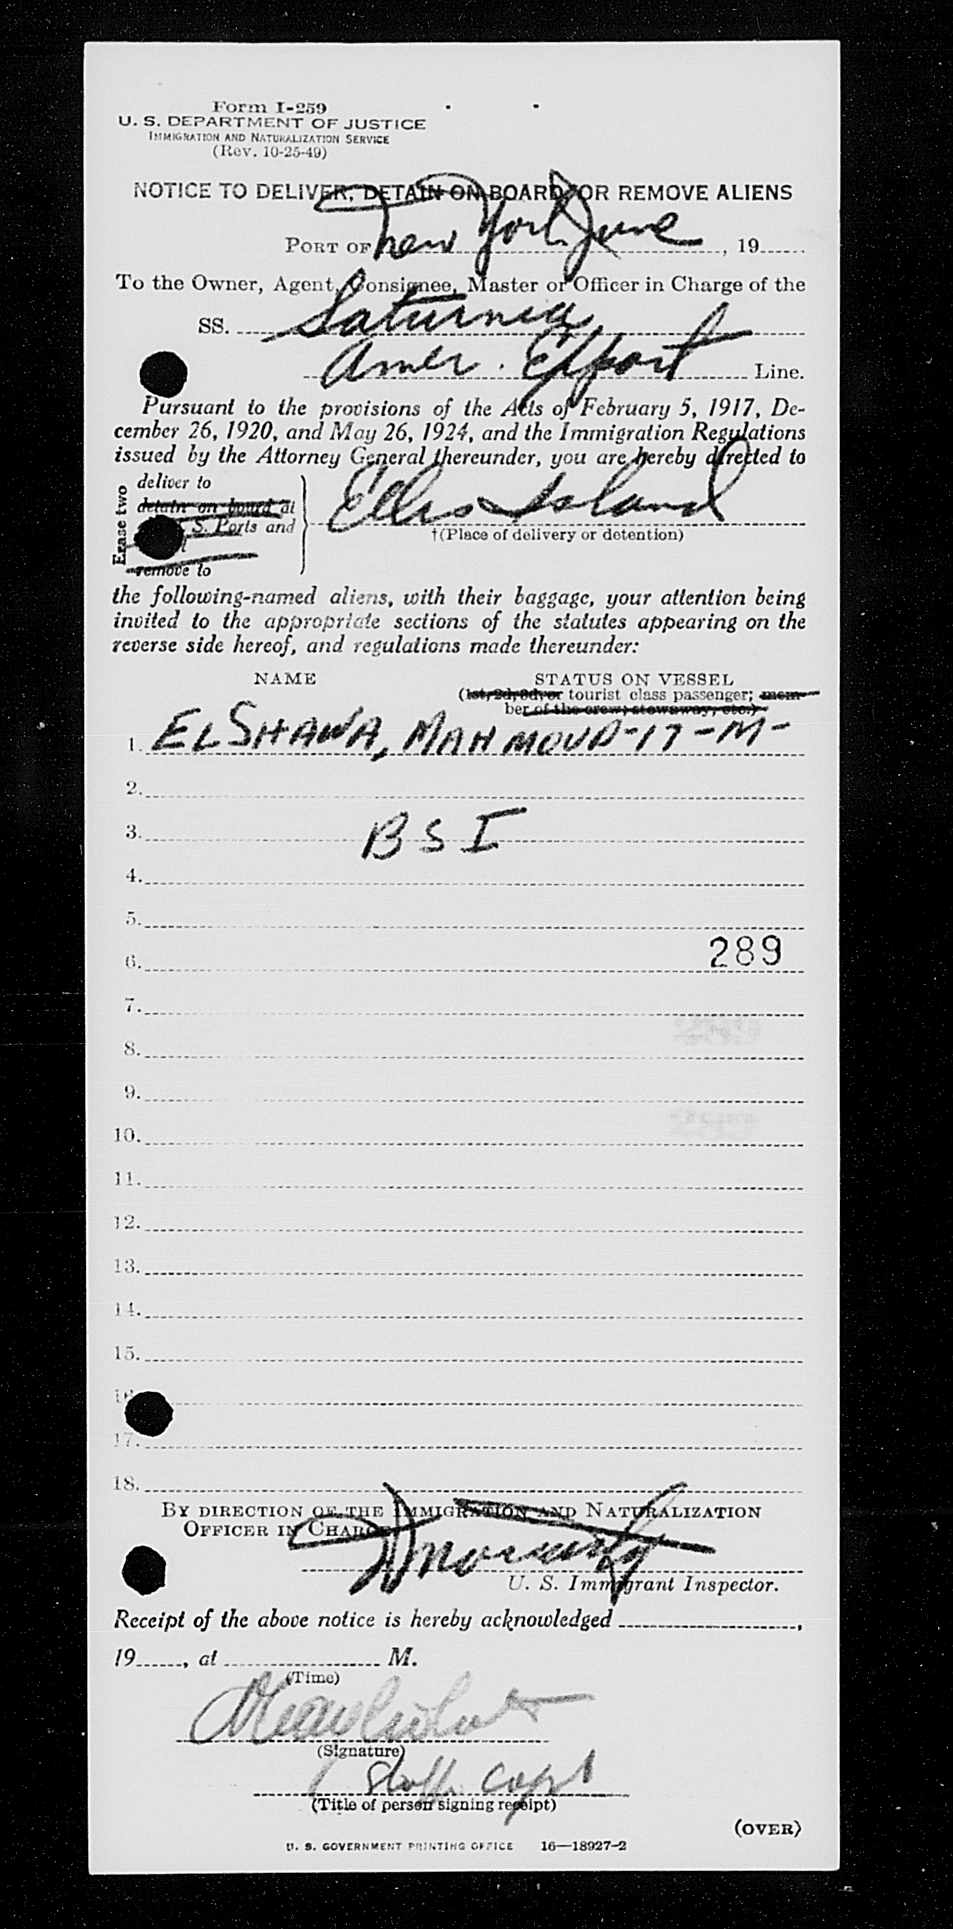 Form I-259
U. S. DEPARTMENT OF JUSTICE
IMMIGRATION AND NATURALIZATION SERVICE
(Rev. 10-25-49)
NOTICE TO DELIVER, DETAIN ON BOARD, OR REMOVE ALIENS
PORT OF New York June, 19
To the Owner, Agent, Consignee, Master or Officer in Charge of the
SS. Saturnia
Amer. Export Line.
Pursuant to the provisions of the Acts of February 5, 1917, De-
cember 26, 1920, and May 26, 1924, and the Immigration Regulations
issued by the Attorney General thereunder, you are hereby directed to
Erase two
deliver to
detain on board at
S. Ports and
remove to
Ellis Island
†(Place of delivery or detention)
the following-named aliens, with their baggage, your attention being
invited to the appropriate sections of the statutes appearing on the
reverse side hereof, and regulations made thereunder:
NAME STATUS ON VESSEL
(1st, 2d, 3d, or tourist class passenger; mem-
ber of the crew; stowaway, etc.)
1. EL SHAWA, MAHMOUD-17-M-
2.
3. BSI
4.
5.
6. 289
7.
8.
9.
10.
11.
12.
13.
14.
15.
16.
17.
18.
BY DIRECTION OF THE IMMIGRATION AND NATURALIZATION
OFFICER IN CHARGE
U. S. Immigrant Inspector.
Receipt of the above notice is hereby acknowledged ,
19 , at M.
(Time)
(Signature)
Staff Capt
(Title of person signing receipt)
(OVER)
U. S. GOVERNMENT PRINTING OFFICE 16—18927-2